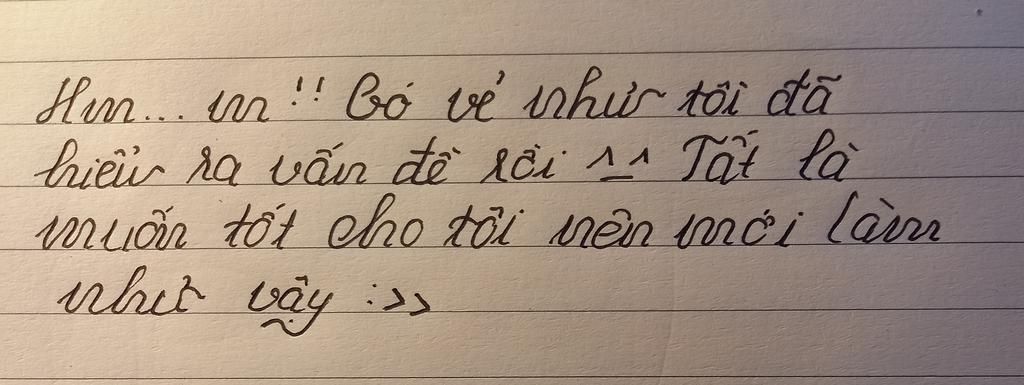 Hm... m !! Có vẻ như tôi đã
hiểu ra vấn đề rồi ^_^ Tất là
muốn tốt cho tôi nên mới làm
như vậy :>>